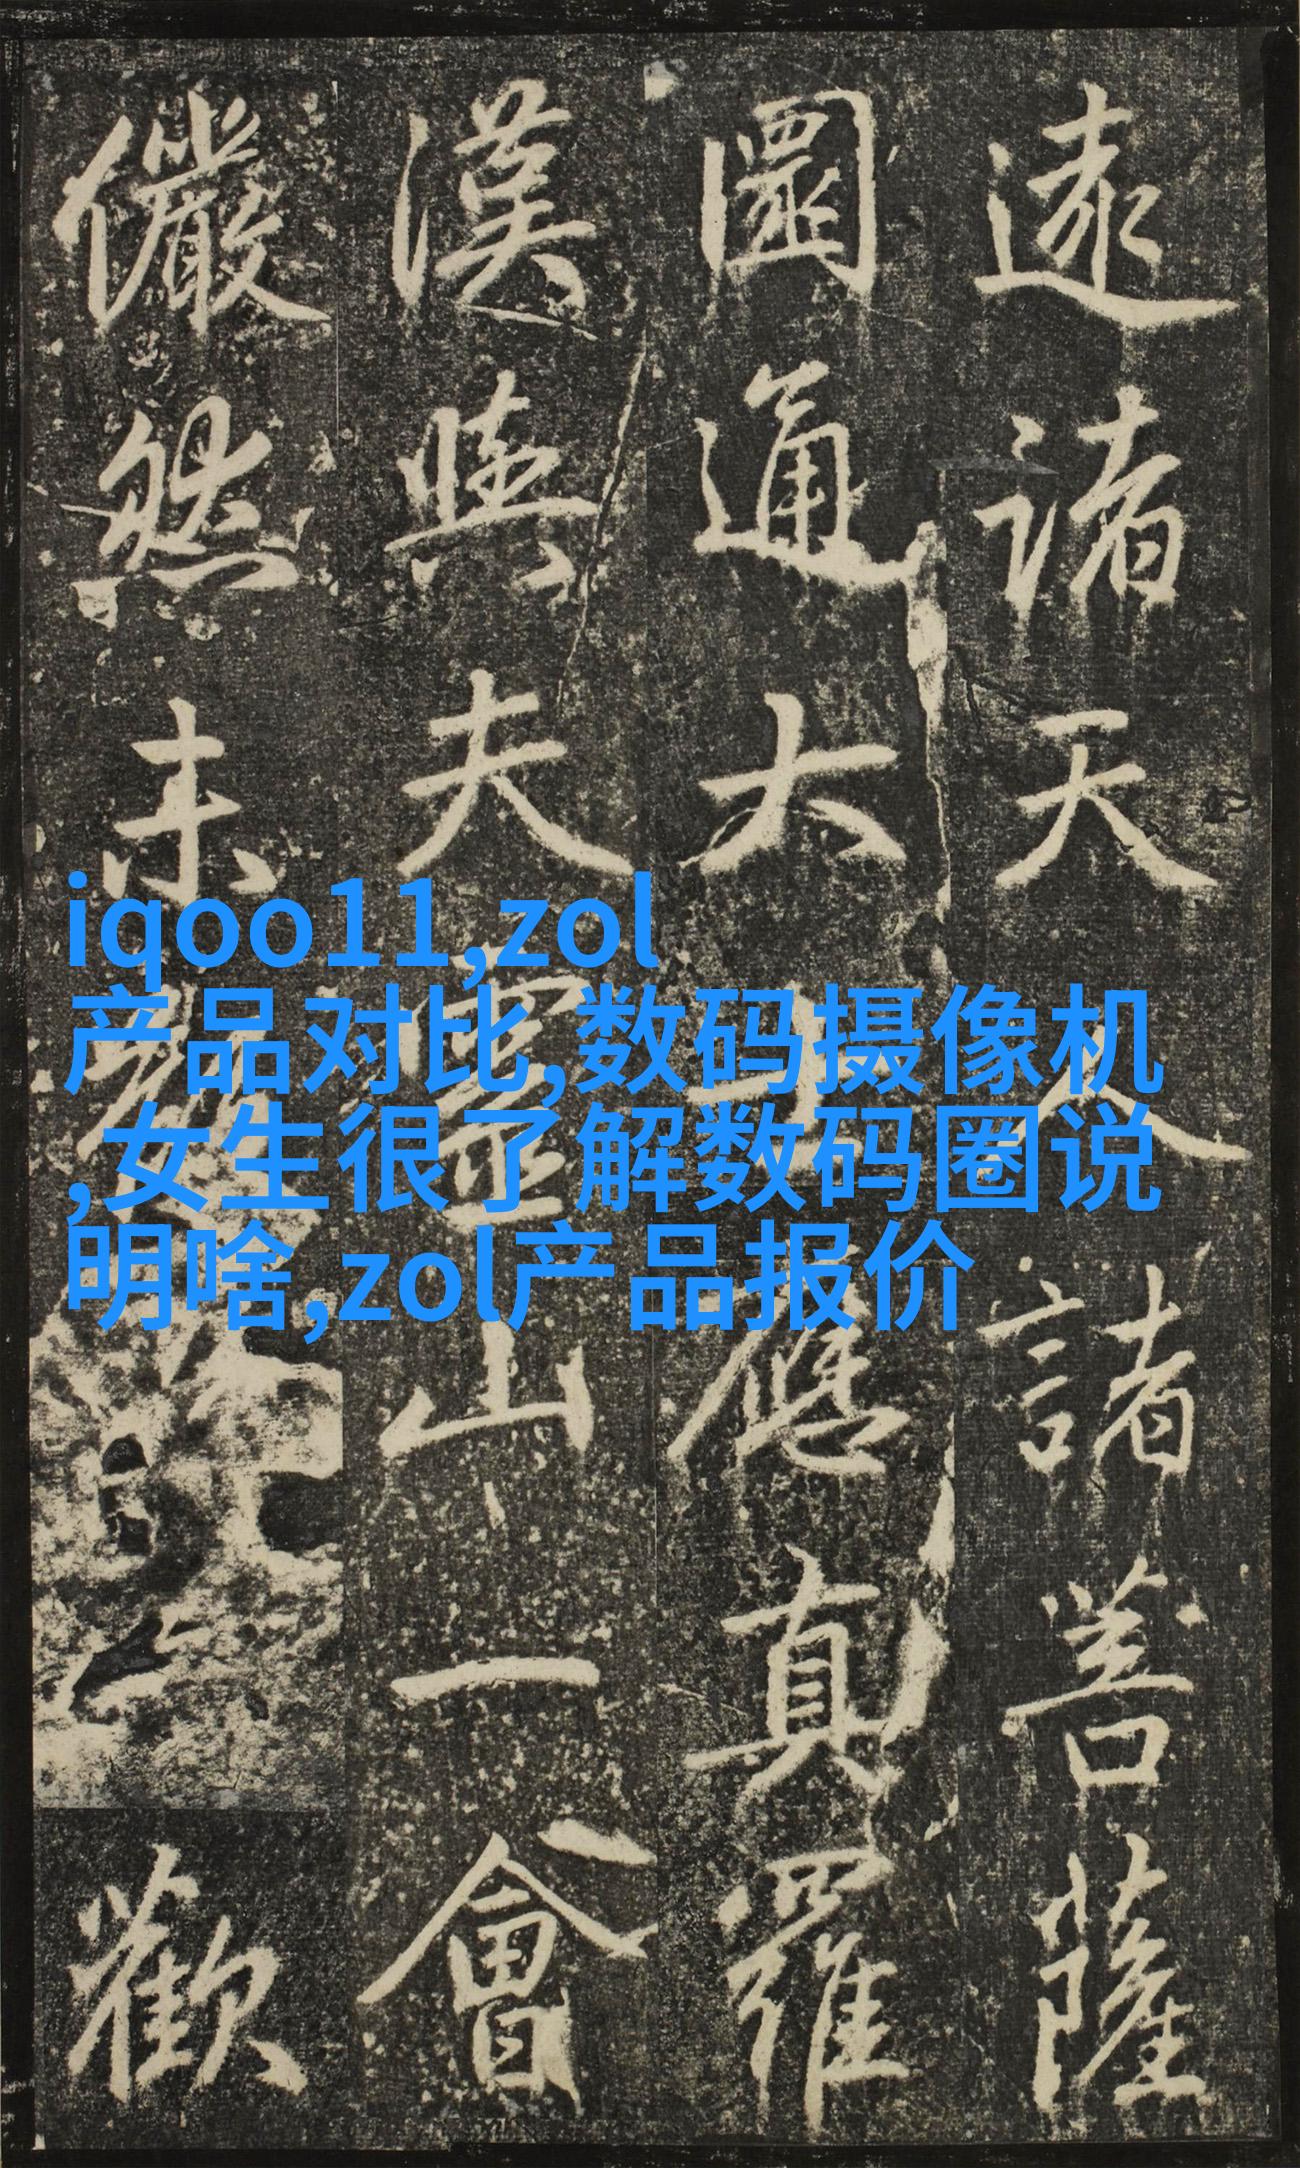 遠諸天人諸菩薩
圓通大士應真羅
漢與夫靈山一會
儼然未歡
iqoo11,zol
产品对比,数码摄像机
,女生很了解数码圈说
明啥,zol产品报价